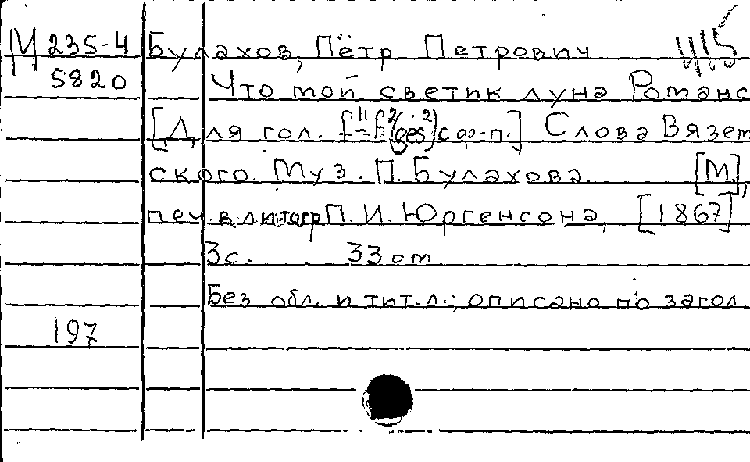 М 235-4 Булахов, Пётр Петрович 415
5820 Что мой светик луна Романс
[Для гол. с ф-п.] Слова Вязем
ского. Муз. П. Булахова. [М],
печ. в литогр П. И. Юргенсона, [1867]
3с. 33 см
Без обл. и тит. л.; описано по загол.
197